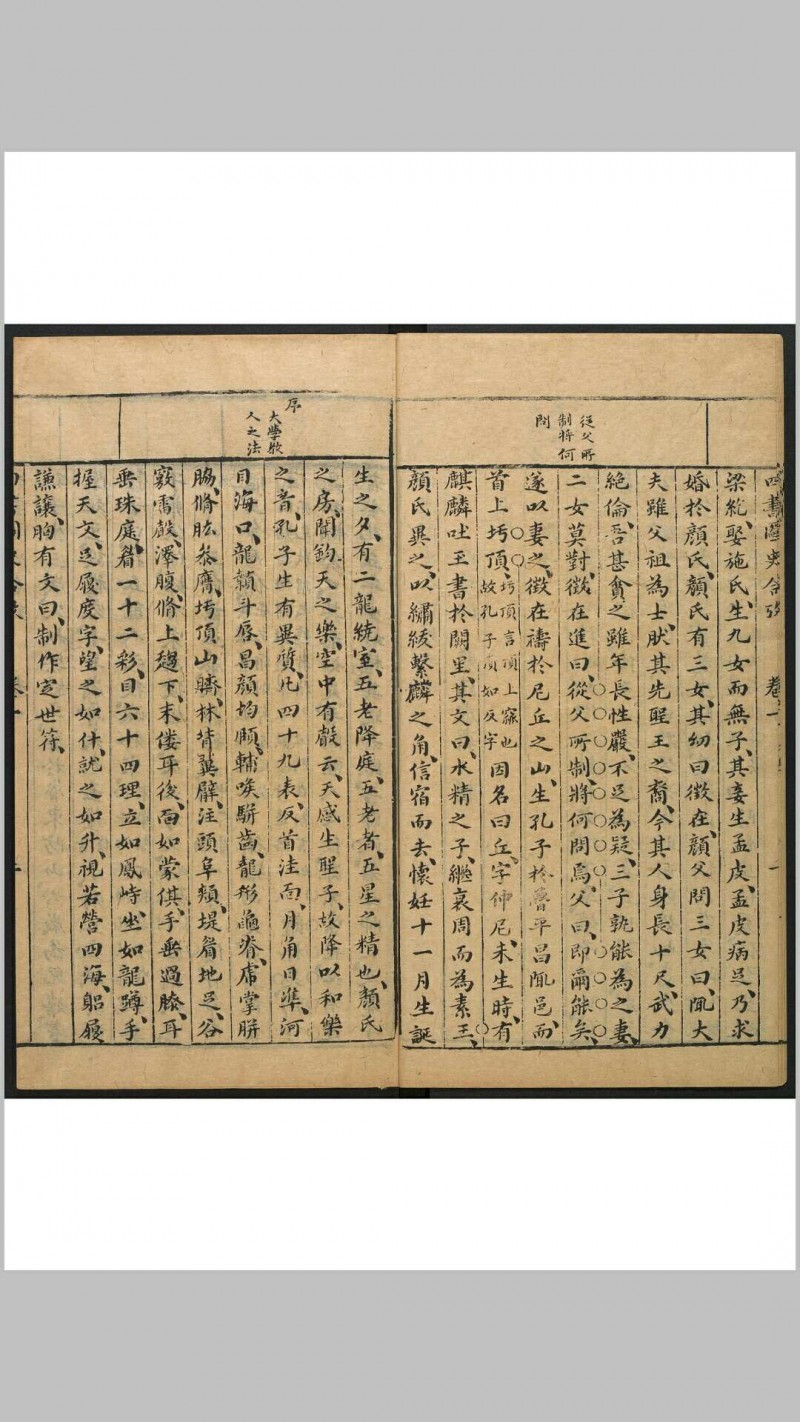 四書圖史合攷 卷一 一
梁紇、娶施氏、生九女而無子、其妾生孟皮、孟皮病足、乃求
婚於顏氏、顏氏有三女、其幼曰徵在、顏父問三女曰、陬大
夫雖父祖為士、肰其先聖王之裔、今其人身長十尺、武力
絶倫、吾甚貪之、雖年長性嚴、不足為疑、三子孰能為之妻、
二女莫對、徵在進曰、從父所制、將何問焉、父曰、即爾能矣、
遂以妻之、徵在禱於尼丘之山、生孔子於魯平昌陬邑、而
首上圬頂、圬頂言頂上窳也故孔子頂如反宇因名曰丘、字仲尼、未生時、有
麒麟吐玉書於闕里、其文曰、水精之子、繼衰周而為素王、
顏氏異之、以繡紱繫麟之角、信宿而去、懷妊十一月生誕
從父所
制將何
問
生之夕、有二龍繞室、五老降庭、五老者、五星之精也、顏氏
之房、聞鈞天之樂、空中有聲云、天感生聖子、故降以和樂
之音、孔子生有異質、凡四十九表、反首洼面、月角日準、河
目海口、龍顙斗唇、昌顏均頤、輔喉駢齒、龍形龜脊、虎掌胼
脇、脩肱參膺、圬頂山臍、林背翼臂、注頭阜頰、堤眉地足、谷
竅雷聲、澤腹、脩上趨下、末僂耳後、面如蒙倛、手垂過膝、耳
垂珠庭、眉一十二彩、目六十四理、立如鳳峙、坐如龍蹲、手
握天文、足履度字、望之如仆、就之如升、視若營四海、躬履
謙讓、胸有文曰、制作定世符、
序
大學教
人之法